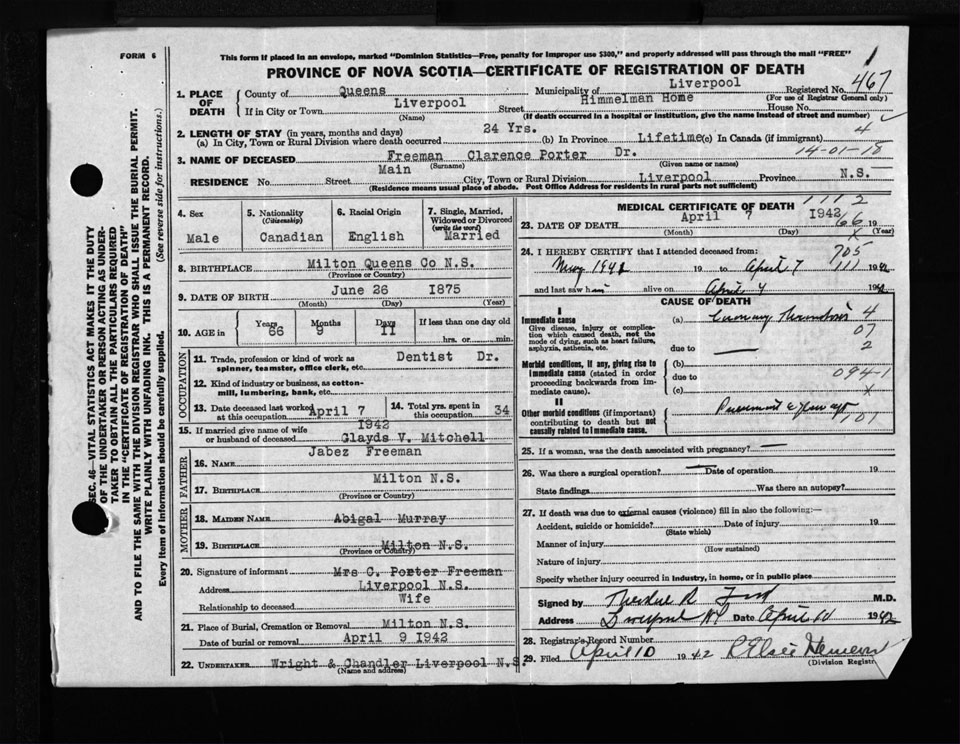 FORM 6
This form if placed in an envelope, marked "Dominion Statistics—Free, penalty for improper use $300," and properly addressed will pass through the mail "FREE"
1
PROVINCE OF NOVA SCOTIA—CERTIFICATE OF REGISTRATION OF DEATH
467
SEC. 46—VITAL STATISTICS ACT MAKES IT THE DUTY
OF THE UNDERTAKER OR PERSON ACTING AS UNDER-
TAKER TO OBTAIN ALL THE PARTICULARS REQUIRED
IN THE "CERTIFICATE OF REGISTRATION OF DEATH"
AND TO FILE THE SAME WITH THE DIVISION REGISTRAR WHO SHALL ISSUE THE BURIAL PERMIT.
WRITE PLAINLY WITH UNFADING INK. THIS IS A PERMANENT RECORD.
Every item of information should be carefully supplied. (See reverse side for instructions.)
1. PLACE OF DEATH County of Queens Municipality of Liverpool Registered No.
(For use of Registrar General only)
If in City or Town Liverpool Street Himmelman Home House No.
(Name) (If death occurred in a hospital or institution, give the name instead of street and number)
2. LENGTH OF STAY (in years, months and days)
(a) In City, Town or Rural Division where death occurred 24 Yrs. (b) In Province Lifetime (c) In Canada (if immigrant) 4
14-01-18
3. NAME OF DECEASED Freeman Clarence Porter Dr.
(Surname) (Given name or names)
RESIDENCE No. Street Main City, Town or Rural Division Liverpool Province N.S.
(Residence means usual place of abode. Post Office Address for residents in rural parts not sufficient)
4. Sex Male
5. Nationality (Citizenship) Canadian
6. Racial Origin English
7. Single, Married, Widowed or Divorced (write the word) Married
8. BIRTHPLACE Milton Queens Co N.S.
(Province or Country)
9. DATE OF BIRTH June 26 1875
(Month) (Day) (Year)
10. AGE in Years 66 Months 9 Days 11 If less than one day old hrs. or min.
OCCUPATION
11. Trade, profession or kind of work as spinner, teamster, office clerk, etc. Dentist Dr.
12. Kind of industry or business, as cotton-mill, lumbering, bank, etc.
13. Date deceased last worked at this occupation April 7 1942
14. Total yrs. spent in this occupation 34
15. If married give name of wife or husband of deceased Glayds V. Mitchell
FATHER
16. NAME Jabez Freeman
17. BIRTHPLACE Milton N.S.
(Province or Country)
MOTHER
18. MAIDEN NAME Abigal Murray
19. BIRTHPLACE Milton N.S.
(Province or Country)
20. Signature of informant Mrs C. Porter Freeman
Address Liverpool N.S.
Relationship to deceased Wife
21. Place of Burial, Cremation or Removal Milton N.S.
Date of burial or removal April 9 1942
22. UNDERTAKER Wright & Chandler Liverpool N.S.
(Name and address)
MEDICAL CERTIFICATE OF DEATH 1112
23. DATE OF DEATH April 7 1942 19
66
(Month) (Day) (Year)
24. I HEREBY CERTIFY that I attended deceased from: 705
May 1941 19 to April 7 1942
111
and last saw him alive on April 4 1942
CAUSE OF DEATH
I
Immediate cause (a) Coronary Thrombosis 4
Give disease, injury or complication which caused death, not the mode of dying, such as heart failure, asphyxia, asthenia, etc.
07
due to 2
Morbid conditions, if any, giving rise to immediate cause (stated in order proceeding backwards from immediate cause).
(b)
due to 094-1
(c) x
II
Other morbid conditions (if important) contributing to death but not causally related to immediate cause.
25. If a woman, was the death associated with pregnancy? —
26. Was there a surgical operation? — Date of operation 19
State findings Was there an autopsy?
27. If death was due to external causes (violence) fill in also the following:—
Accident, suicide or homicide? Date of injury 19
(State which)
Manner of injury
(How sustained)
Nature of injury
Specify whether injury occurred in industry, in home, or in public place
Signed by Theodore R. Ford M.D.
Address Liverpool NS Date April 10 1942
28. Registrar's Record Number
29. Filed April 10 1942
(Division Registr